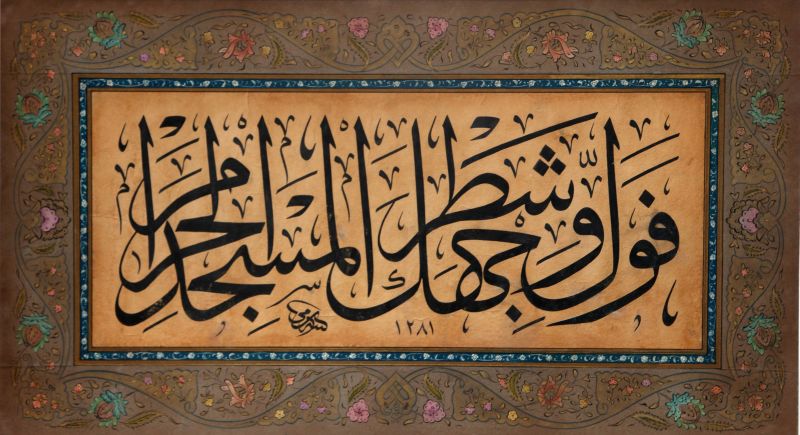 فَوَلِّ وَجْهَكَ شَطْرَ الْمَسْجِدِ الْحَرَامِ
١٢٨١